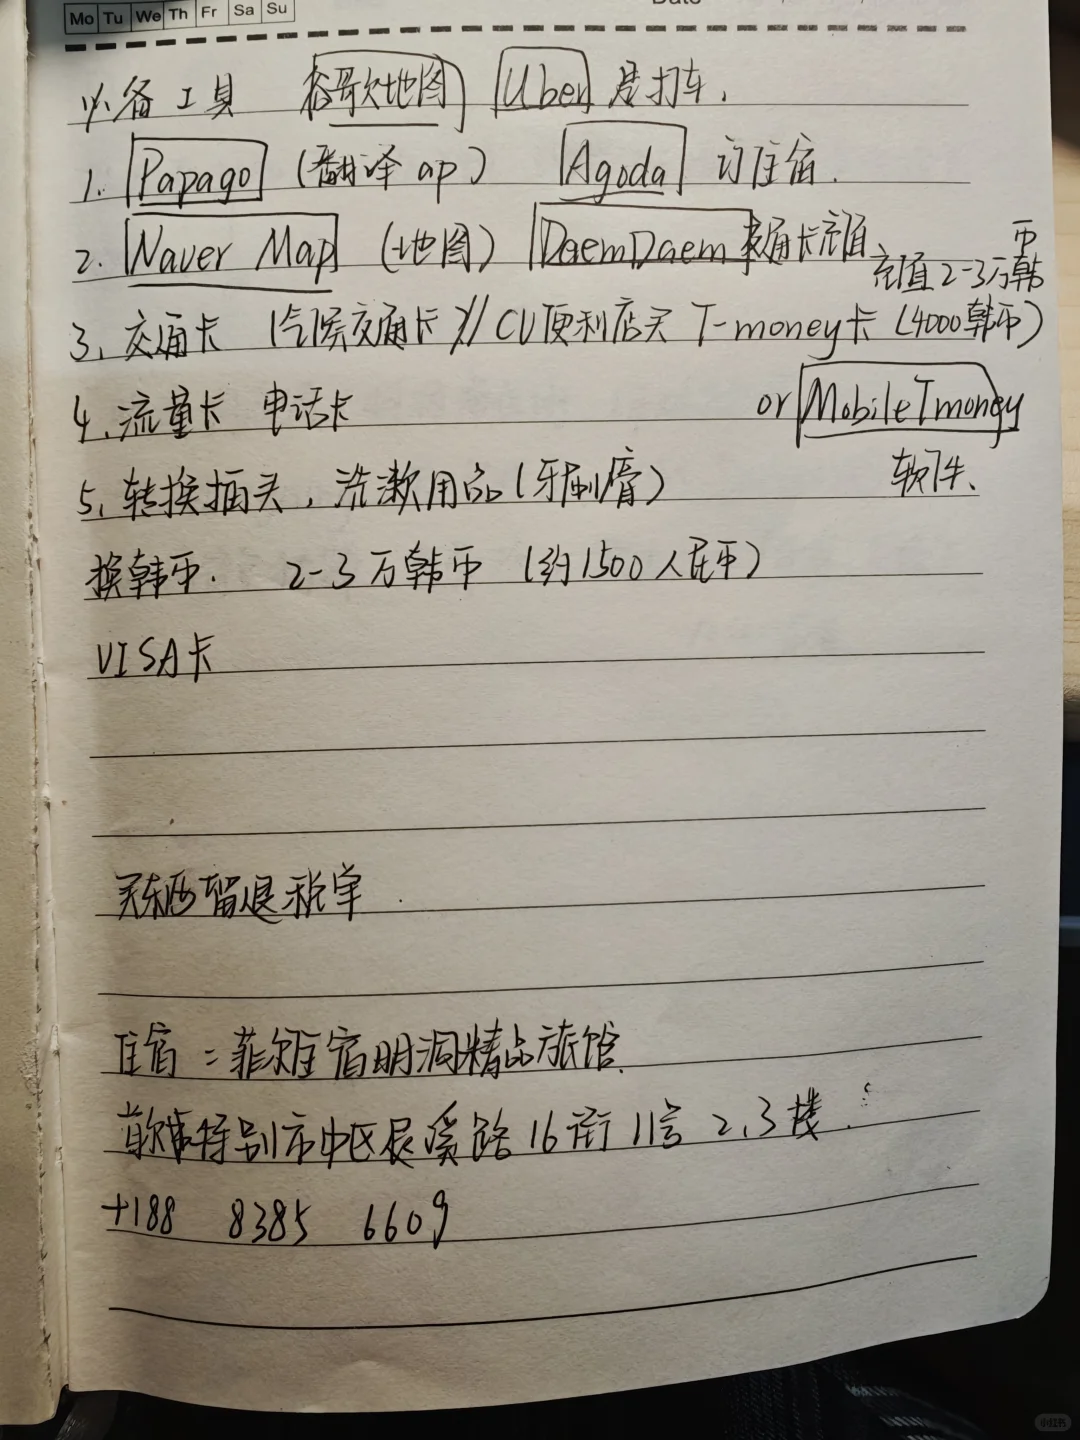 Mo Tu We Th Fr Sa Su
Date
必备工具 谷歌地图 Uber 是打车.
1. Papago (翻译ap) Agoda 订住宿.
2. Naver Map (地图) DaemDaem 交通卡充值
充值2-3万韩币
3. 交通卡 (气候交通卡) // CU便利店买 T-money卡 (4000韩币)
4. 流量卡 电话卡 or MobileTmoney
软件、
5. 转换插头, 洗漱用品 (牙刷膏)
换韩币. 2-3万韩币 (约1500人民币)
VISA卡
买东西留退税单.
住宿: 菲尔住宿明洞精品旅馆.
首尔特别市中区退溪路16街11号 2.3楼.
+188 8385 6609
小红书